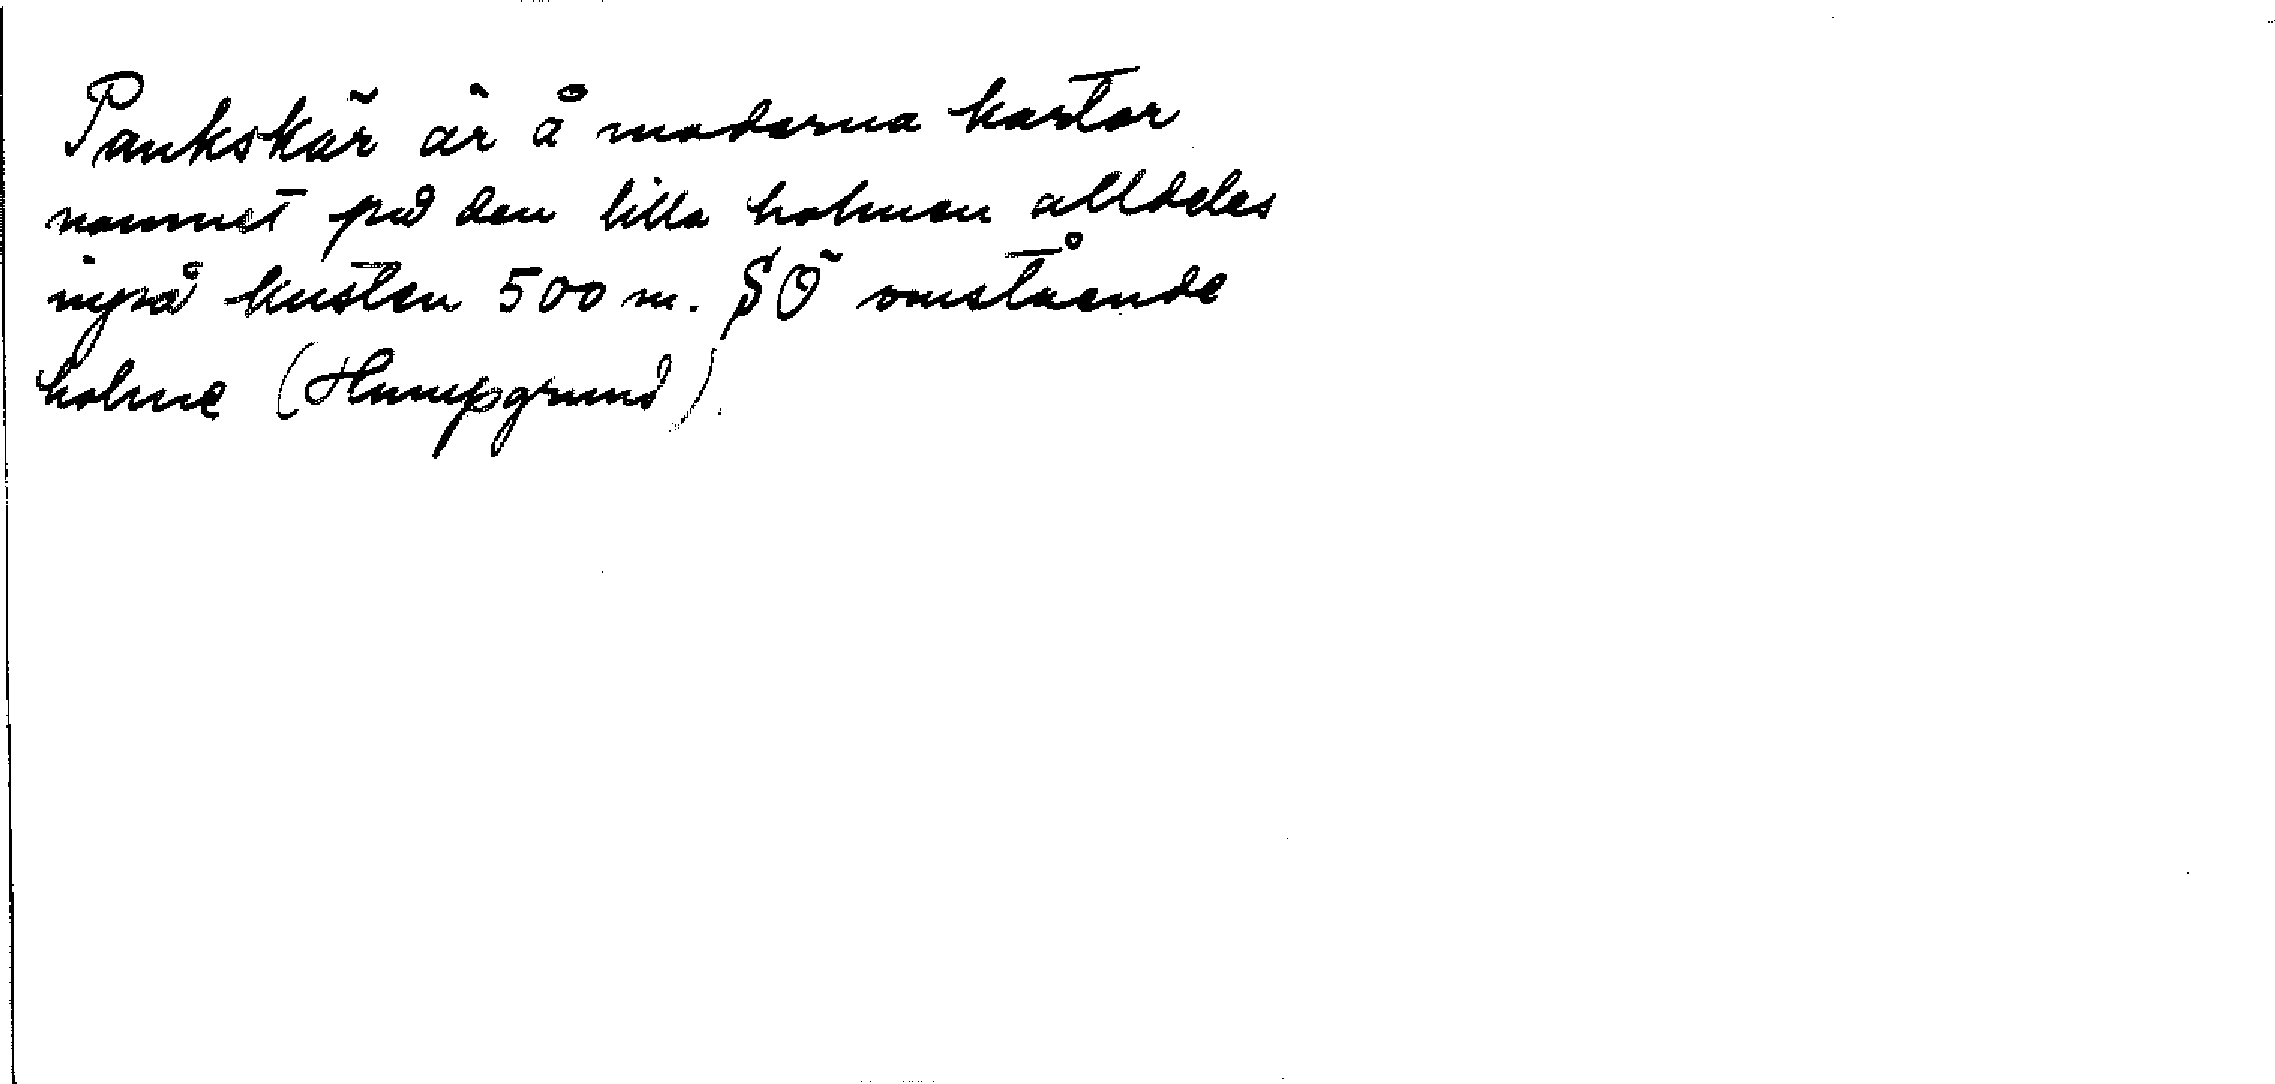 Pankskär är å moderna kartor
namnet på den lilla holmen alldeles
inpå kusten 500 m. SÖ omstående
holme (Humpgrund).